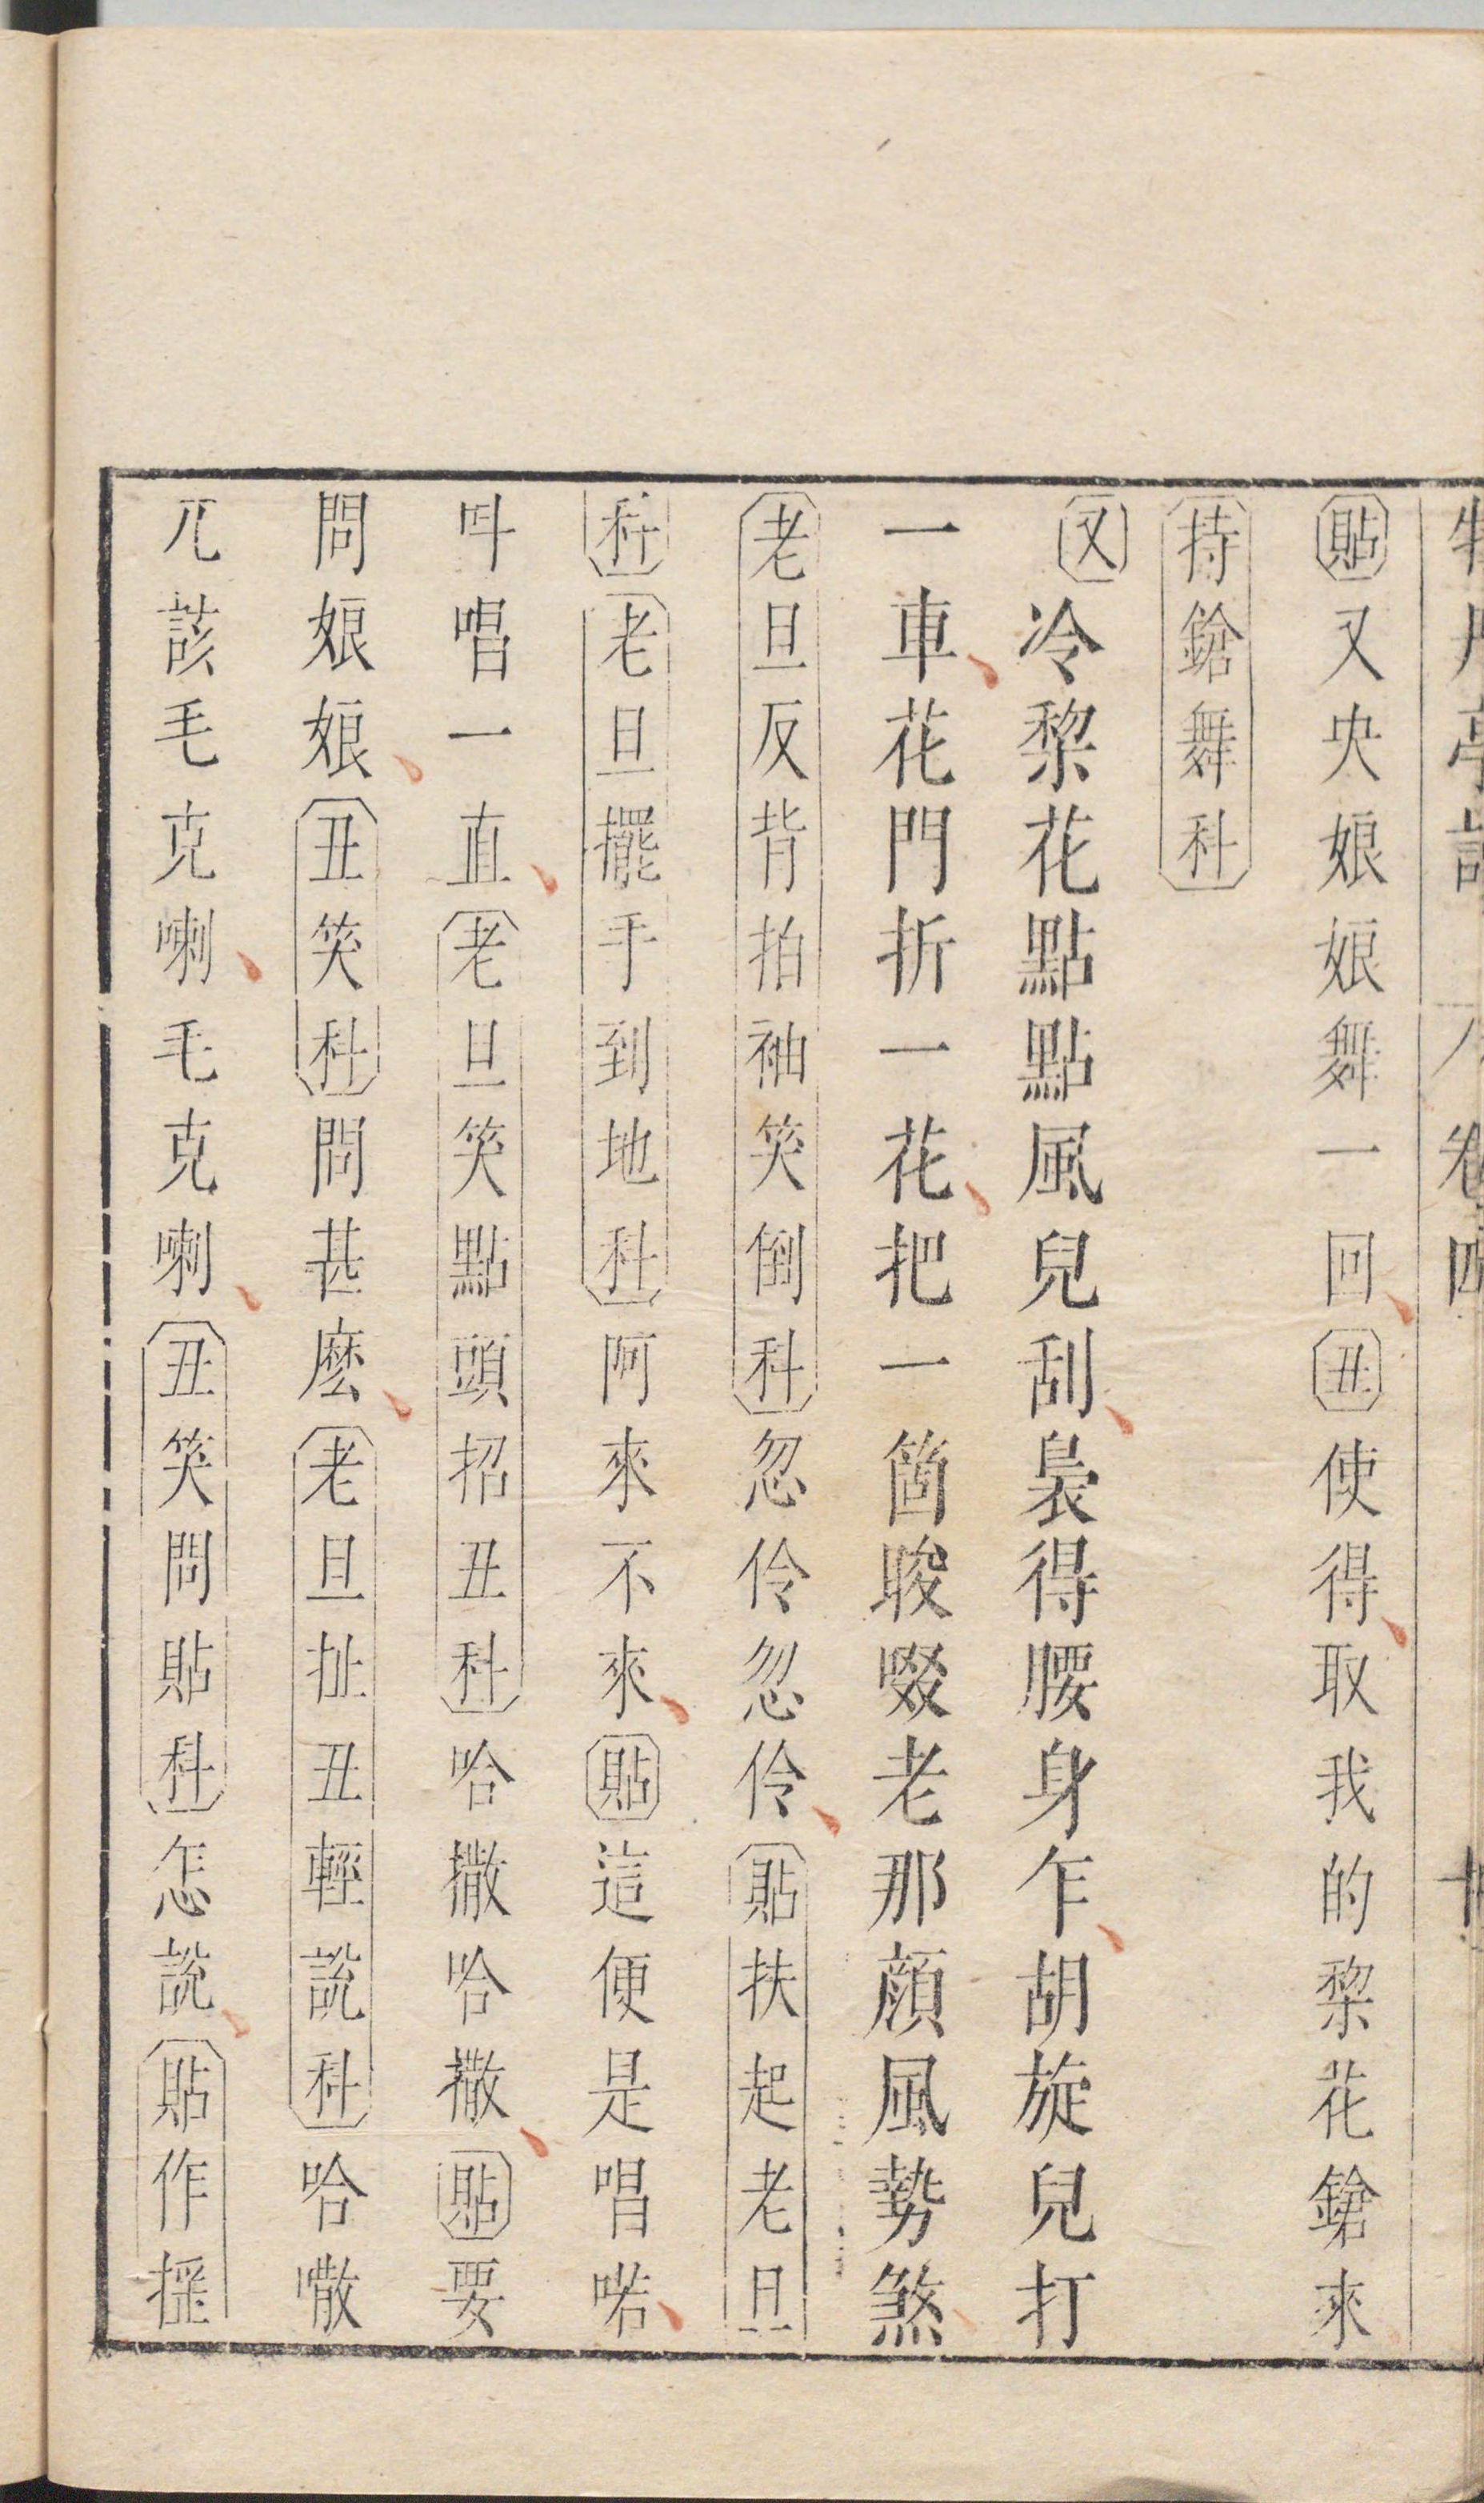 牡丹亭記 卷四
貼又央娘娘舞一回丑使得取我的棃花鎗來
持鎗舞科
又冷棃花點點風兒刮裊得腰身乍胡旋兒打
一車花門折一花把一箇睃啜老那顏風勢煞
老旦反背拍袖笑倒科忽伶忽伶貼扶起老旦
科老旦擺手到地科阿來不來貼這便是唱喏
呌唱一直老旦笑點頭招丑科哈撒哈撒貼要
問娘娘丑笑科問甚麽老旦扯丑輕說科哈㘔
兀該毛克喇毛克喇丑笑問貼科怎說貼作摇